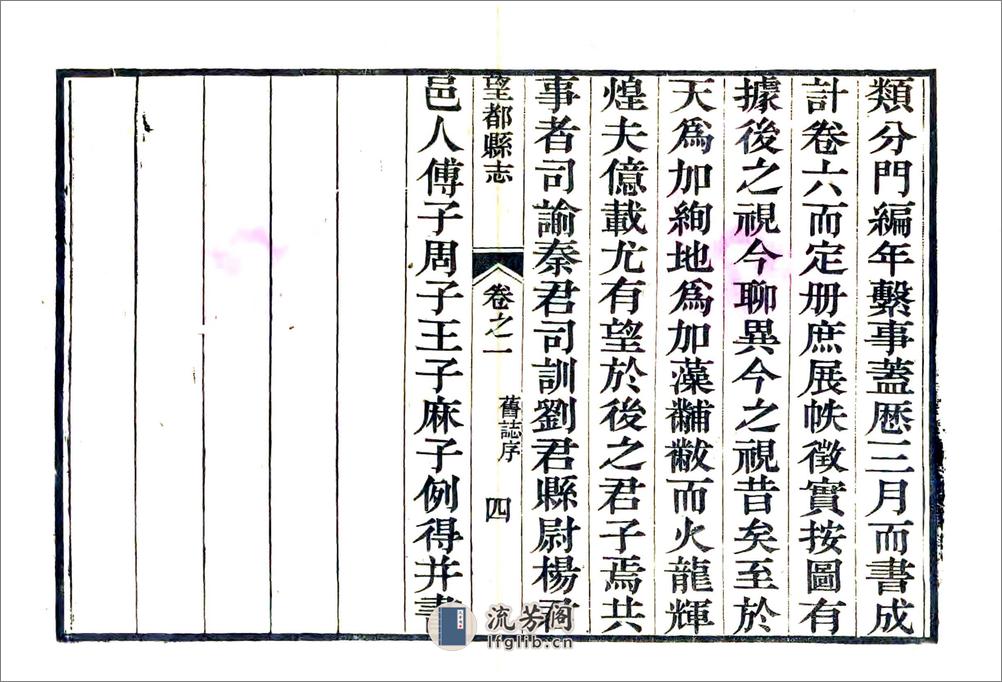 類分門編年繫事蓋歴三月而書成
計卷六而定册庶展帙徵實按圖有
據後之視今聊異今之視昔矣至於
天爲加絢地爲加藻黼黻而火龍輝
煌夫億載尤有望於後之君子焉共
事者司諭秦君司訓劉君縣尉楊君
望都縣志
卷之一
舊誌序
四
邑人傅子周子王子麻子例得并書
流芳阁
lfglib.cn